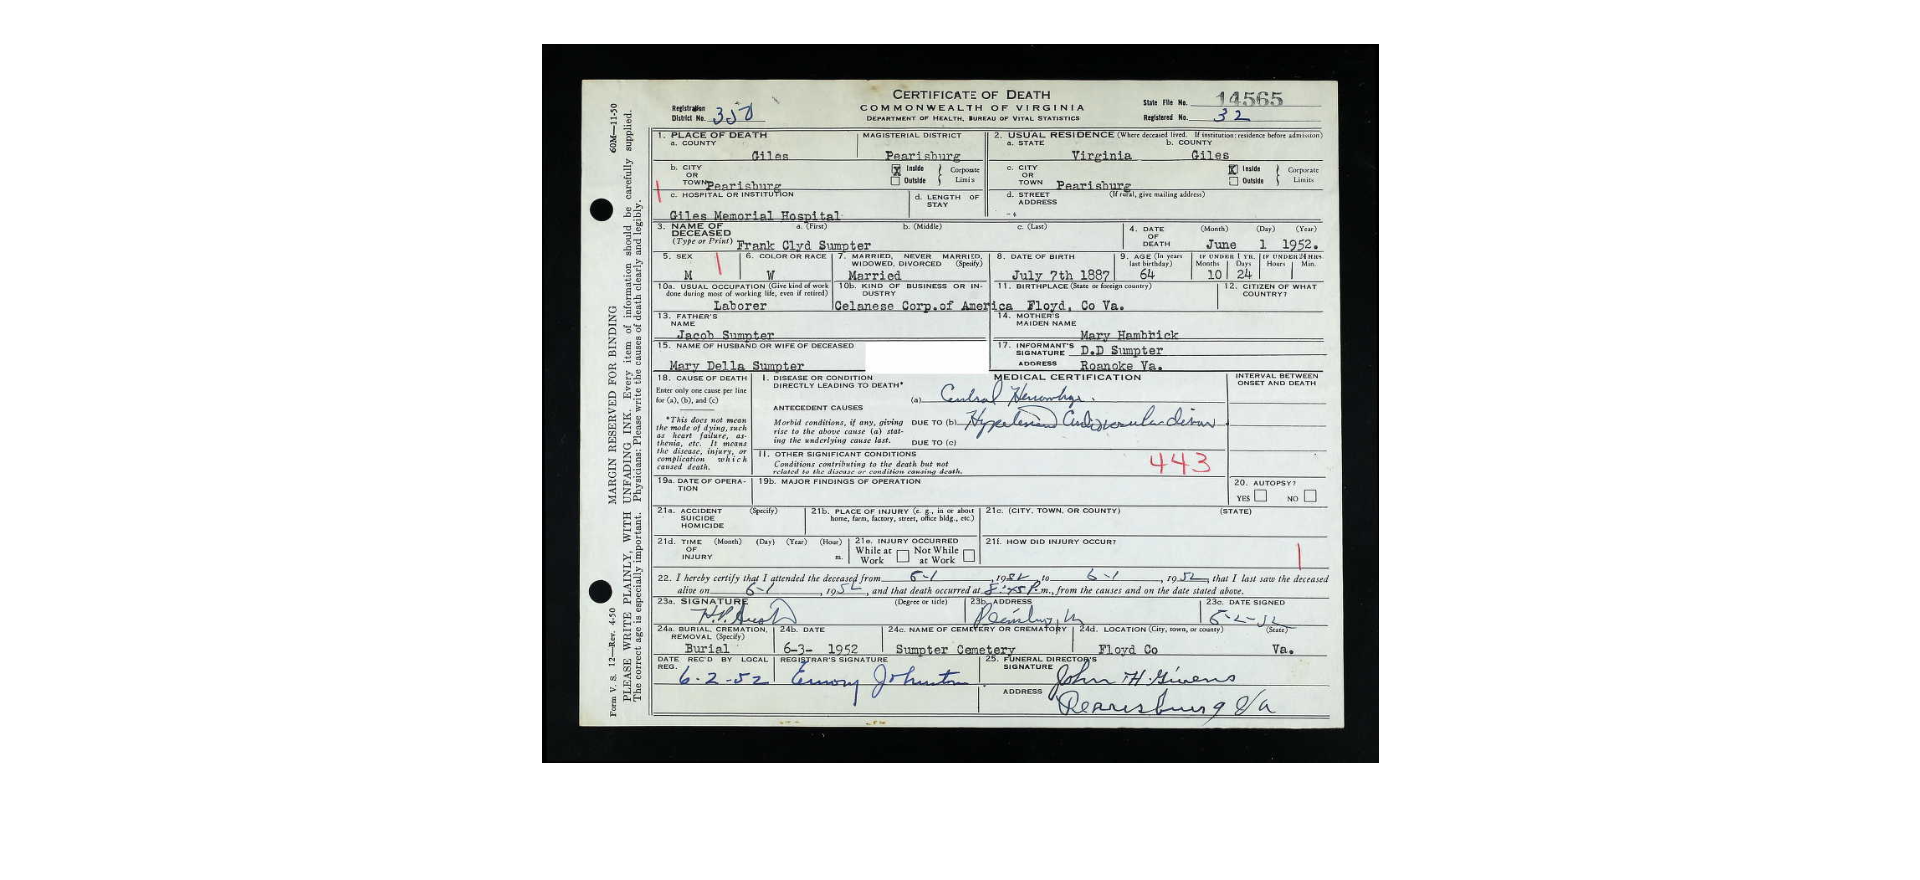 CERTIFICATE OF DEATH
COMMONWEALTH OF VIRGINIA
DEPARTMENT OF HEALTH, BUREAU OF VITAL STATISTICS
Registration District No. 350
State File No. 14565
Registered No. 32
1. PLACE OF DEATH
a. COUNTY Giles
MAGISTERIAL DISTRICT Pearisburg
2. USUAL RESIDENCE (Where deceased lived. If institution: residence before admission)
a. STATE Virginia b. COUNTY Giles
b. CITY OR TOWN Pearisburg
X Inside Outside } Corporate Limits
c. CITY OR TOWN Pearisburg
X Inside Outside } Corporate Limits
c. HOSPITAL OR INSTITUTION
Giles Memorial Hospital
d. LENGTH OF STAY
d. STREET ADDRESS (If rural, give mailing address)
3. NAME OF DECEASED (Type or Print) a. (First) b. (Middle) c. (Last)
Frank Clyd Sumpter
4. DATE OF DEATH (Month) (Day) (Year)
June 1 1952.
5. SEX M
6. COLOR OR RACE W
7. MARRIED, NEVER MARRIED, WIDOWED, DIVORCED (Specify) Married
8. DATE OF BIRTH July 7th 1887
9. AGE (In years last birthday) 64
IF UNDER 1 YR. Months 10 Days 24
IF UNDER 24 HRS. Hours Min.
10a. USUAL OCCUPATION (Give kind of work done during most of working life, even if retired) Laborer
10b. KIND OF BUSINESS OR INDUSTRY Celanese Corp.of America
11. BIRTHPLACE (State or foreign country) Floyd, Co Va.
12. CITIZEN OF WHAT COUNTRY?
13. FATHER'S NAME Jacob Sumpter
14. MOTHER'S MAIDEN NAME Mary Hambrick
15. NAME OF HUSBAND OR WIFE OF DECEASED Mary Della Sumpter
17. INFORMANT'S SIGNATURE D.D Sumpter
ADDRESS Roanoke Va.
18. CAUSE OF DEATH
Enter only one cause per line for (a), (b), and (c)
*This does not mean the mode of dying, such as heart failure, asthenia, etc. It means the disease, injury, or complication which caused death.
MEDICAL CERTIFICATION
INTERVAL BETWEEN ONSET AND DEATH
I. DISEASE OR CONDITION DIRECTLY LEADING TO DEATH*
(a)
ANTECEDENT CAUSES
Morbid conditions, if any, giving rise to the above cause (a) stating the underlying cause last.
DUE TO (b)
DUE TO (c)
II. OTHER SIGNIFICANT CONDITIONS
Conditions contributing to the death but not related to the disease or condition causing death.
443
19a. DATE OF OPERATION
19b. MAJOR FINDINGS OF OPERATION
20. AUTOPSY?
YES NO
21a. ACCIDENT SUICIDE HOMICIDE (Specify)
21b. PLACE OF INJURY (e. g., in or about home, farm, factory, street, office bldg., etc.)
21c. (CITY, TOWN, OR COUNTY) (STATE)
21d. TIME OF INJURY (Month) (Day) (Year) (Hour) m.
21e. INJURY OCCURRED
While at Work Not While at Work
21f. HOW DID INJURY OCCUR?
22. I hereby certify that I attended the deceased from 6-1, 1952, to 6-1, 1952, that I last saw the deceased
alive on 6-1, 1952, and that death occurred at 8:45 P. m., from the causes and on the date stated above.
23a. SIGNATURE (Degree or title)
23b. ADDRESS
23c. DATE SIGNED 6-2-52
24a. BURIAL, CREMATION, REMOVAL (Specify) Burial
24b. DATE 6-3- 1952
24c. NAME OF CEMETERY OR CREMATORY Sumpter Cemetery
24d. LOCATION (City, town, or county) (State) Floyd Co Va.
DATE REC'D BY LOCAL REG. 6-2-52
REGISTRAR'S SIGNATURE Emory Johnston
25. FUNERAL DIRECTOR'S SIGNATURE John H. Givens
ADDRESS Pearisburg Va
Form V. S. 12—Rev. 4-50 60M—11-50
MARGIN RESERVED FOR BINDING
PLEASE WRITE PLAINLY, WITH UNFADING INK. Every item of information should be carefully supplied.
The correct age is especially important. Physicians: Please write the causes of death clearly and legibly.